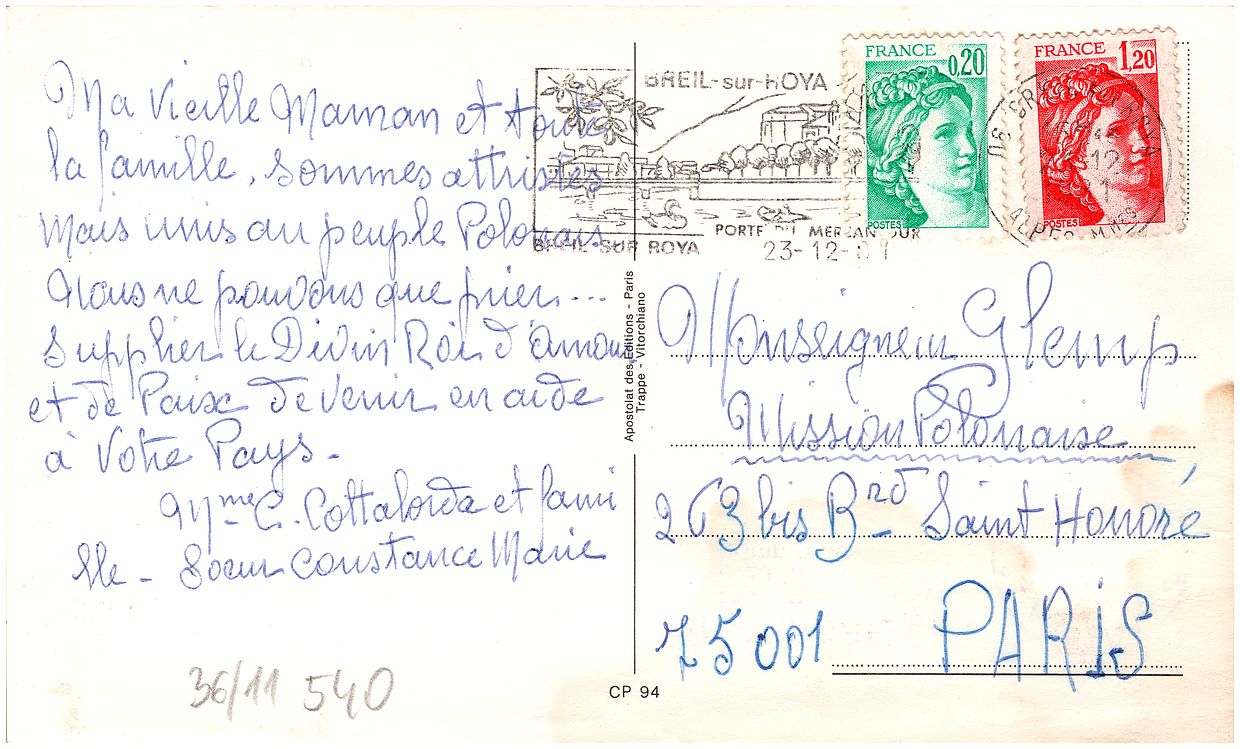 Ma Vieille Maman et toute
la famille, sommes attristés
mais unis au peuple Polonais.
Nous ne pouvons que prier...
Supplier le Divin Roi d'Amour
et de Paix de venir en aide
à Votre Pays.
Mme C. Cottalorda et fami
lle - Soeur Constance Marie
36/11 540
BREIL-sur-ROYA
BREIL SUR ROYA
PORTE DU MERCANTOUR
23-12-81
FRANCE 0,20
POSTES
FRANCE 1,20
POSTES
12
Apostolat des Editions - Paris
Trappe - Vitorchiano
Monseigneur Glemp
Mission Polonaise,
263 bis Brd Saint Honoré
75001 PARIS
CP 94